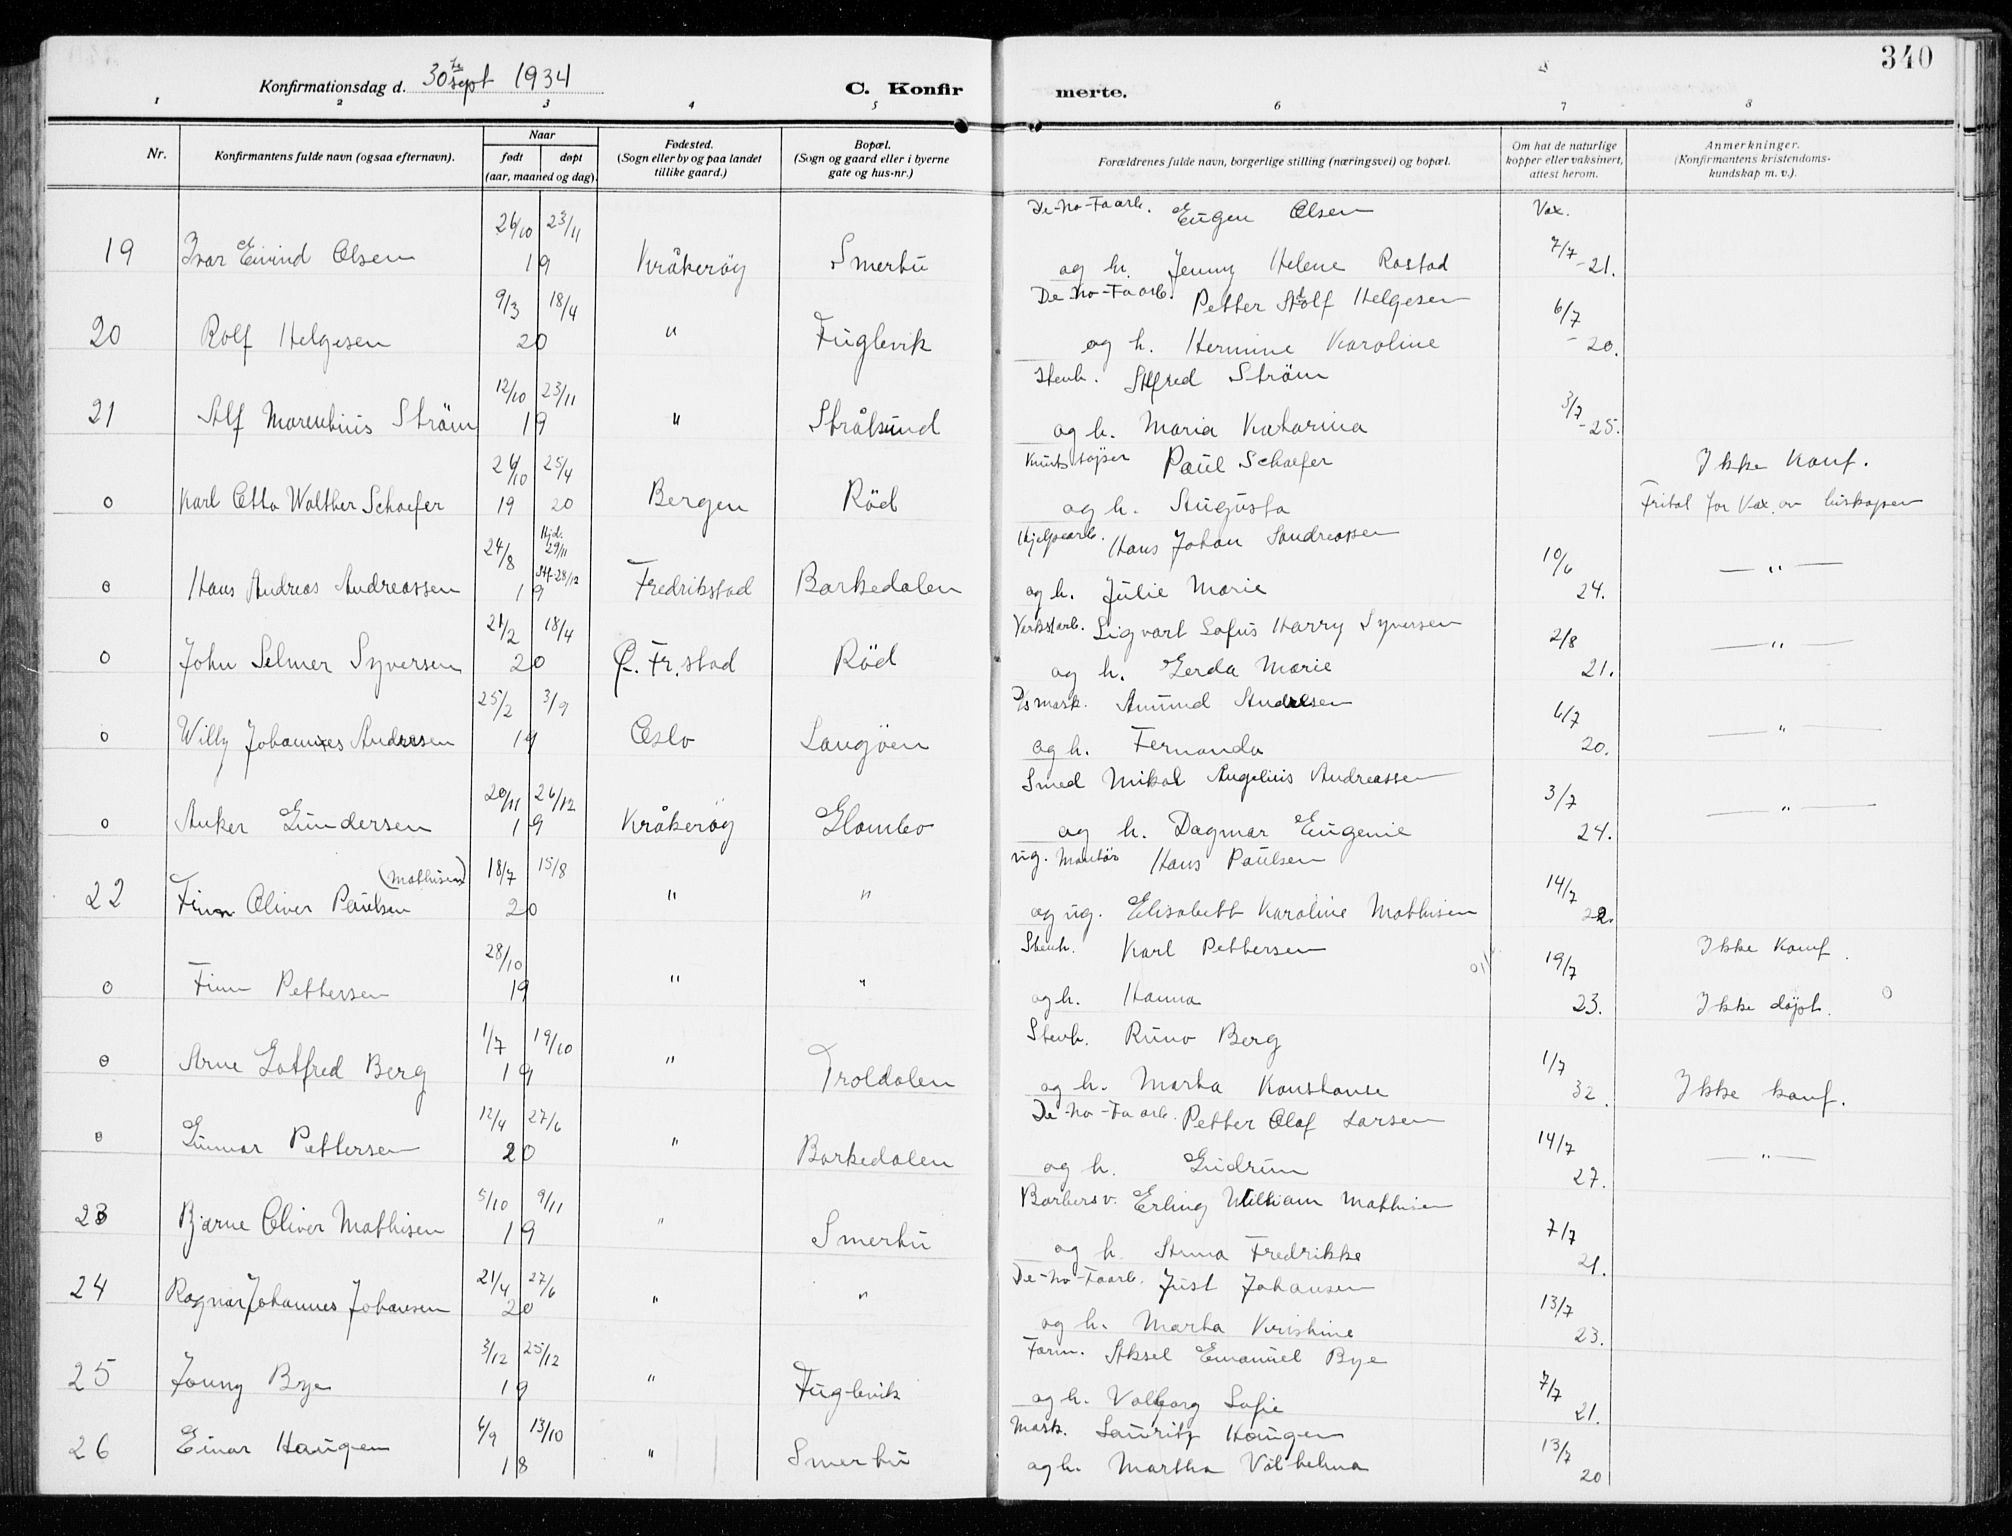 340
Konfirmationsdag d. 30te sept 1934
C. Konfirmerte.
1 2 3 4 5 6 7 8
Nr.
Konfirmantens fulde navn (ogsaa efternavn).
Naar
født døpt
(aar, maaned og dag).
Fødested.
(Sogn eller by og paa landet
tillike gaard.)
Bopæl.
(Sogn og gaard eller i byerne
gate og hus-nr.)
Forældrenes fulde navn, borgerlige stilling (næringsvei) og bopæl.
Om hat de naturlige
kopper eller vaksinert,
attest herom.
Anmerkninger.
(Konfirmantens kristendoms-
kundskap m. v.).
26/10 23/11 De-No-Fa arb. Eugen Olsen Vax.
19 Ivar Eivind Olsen 19 Kråkerøy Smertu og h. Jenny Helene Rostad 7/7 -21.
9/3 18/4 De-No-Fa arb. Petter Adolf Helgesen 6/7
20 Rolf Helgesen 20 " Fuglevik og h. Hermine Karoline -20.
12/10 23/11 Stenh. Alfred Ström 3/7
21 Alf Marentius Ström 19 " Strålsund og h. Maria Katarina -25.
26/10 25/4 Kunststøper Paul Schaefer Ikke Konf.
o Karl Otto Walther Schaefer 19 20 Bergen Röd og h. Augusta Frital for Vax. av biskopen
24/8 Hjd. 29/11 Stf. 28/12 Hjelpearb. Hans Johan Andreassen 10/6
o Hans Andreas Andreassen 19 Fredrikstad Barkedalen og h. Julie Marie 24. — " —
21/2 18/4 Verkstarb. Sigvart Sofus Harry Syversen 2/8
o John Selmer Syversen 20 Ø. Fr.stad Röd og h. Gerda Marie 21. — " —
25/2 3/9 Amund Andresen 6/7
o Willy Johannes Andresen 19 Oslo Langöen og h. Fernanda 20. — " —
20/11 26/12 Smed Mikal Angelius Andreassen 3/7
o Anker Gundersen 19 Kråkerøy Glombo og h. Dagmar Eugenie 24. — " —
(Mathisen) 18/7 15/8 ug. Montör Hans Paulsen 14/7
22 Finn Oliver Paulsen 20 " " og ug. Elisabeth Karoline Mathisen 22.
28/10 Stenh. Karl Pettersen 19/7 Ikke Konf.
o Finn Pettersen 19 " " og h. Hanna 23. Ikke døpt. o
1/7 19/10 Stenh. Runo Berg 1/7
o Arne Gotfred Berg 19 " Troldalen og h. Marta Konstanse 32. Ikke konf.
12/4 27/6 De-No-Fa arb. Petter Olof Larsen 14/7
o Gunnar Pettersen 20 " Barkedalen og h. Gudrun 27. — " —
5/10 9/11 Barbersv. Erling William Mathisen 7/7
23 Bjarne Oliver Mathisen 19 " Smertu og h. Anna Fredrikke 21.
21/4 27/6 De-No-Fa arb. Just Johansen 13/7
24 Ragnar Johannes Johansen 20 " " og h. Marta Kristine 23.
3/12 25/12 Form. Aksel Emanuel Bye 7/7
25 Jonny Bye 19 " Fuglevik og h. Valborg Sofie 21.
6/9 13/10 Mask. Lauritz Haugen 13/7
26 Einar Haugen 18 " Smertu og h. Martha Vilhelma 20